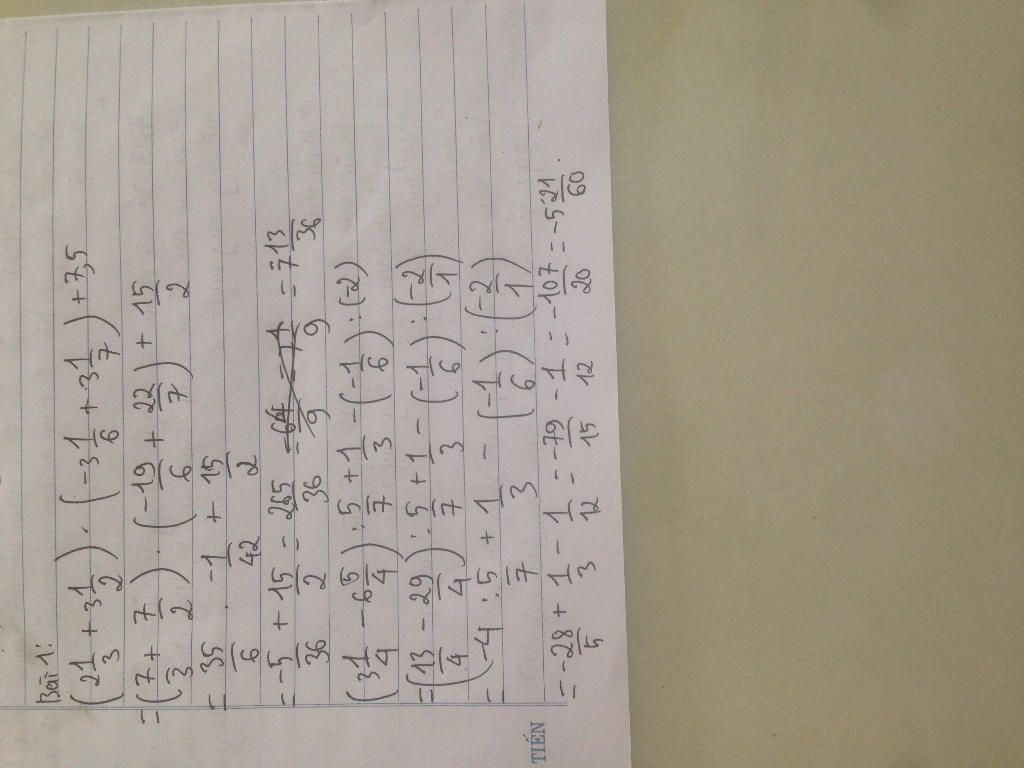 Bài 1:
(2 1/3 + 3 1/2) . (-3 1/6 + 3 1/7) + 7,5
= (7/3 + 7/2) . (-19/6 + 22/7) + 15/2
= 35/6 . -1/42 + 15/2
= -5/36 + 15/2 = 265/36 = 7 13/36
(3 1/4 - 6 5/4) : 5/7 + 1/3 - (-1/6) : (-2)
= (13/4 - 29/4) : 5/7 + 1/3 - (-1/6) : (-2/1)
= (-4 : 5/7 + 1/3 - (-1/6) : (-2/1)
= -28/5 + 1/3 - 1/12 = -79/15 - 1/12 = -107/20 = -5 21/60.
TIẾN